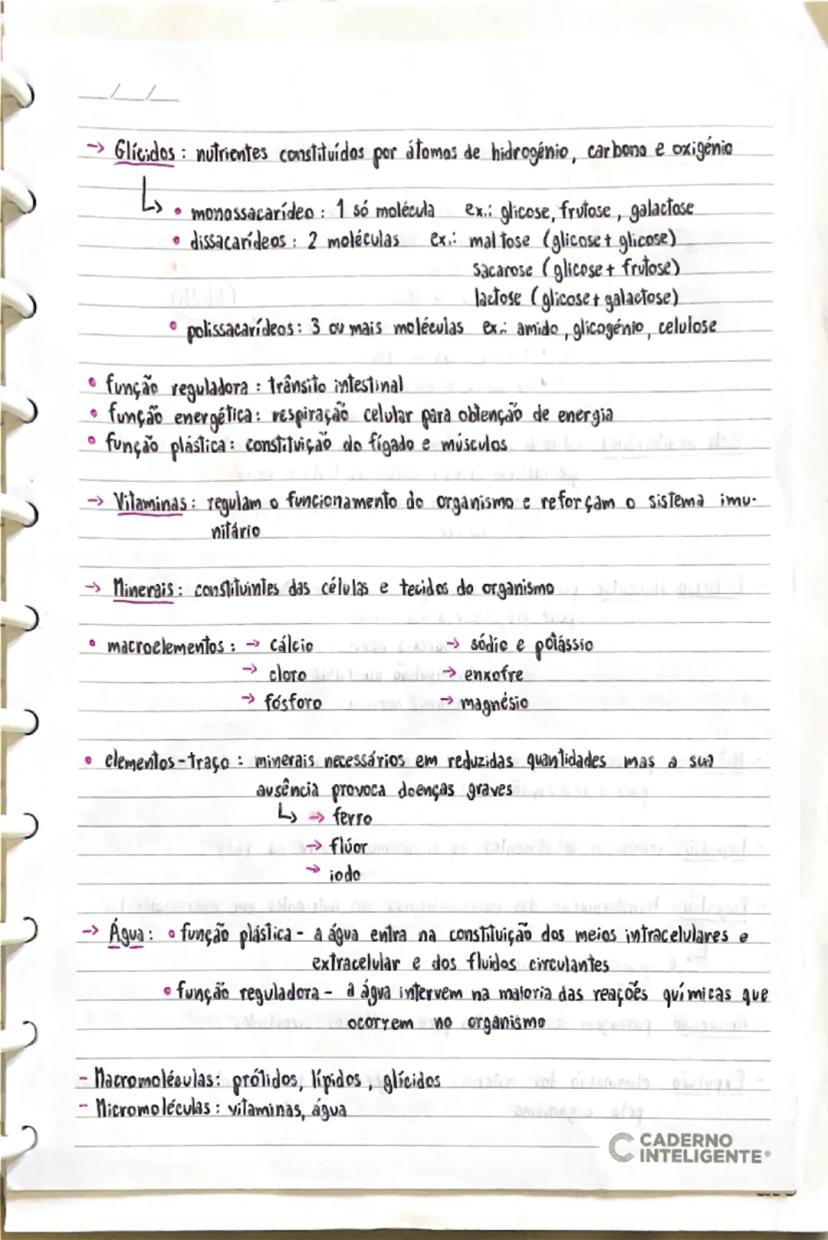 __/__/__
→ Glícidos: nutrientes constituídos por átomos de hidrogénio, carbono e oxigénio
↳ • monossacarídeo: 1 só molécula ex.: glicose, frutose, galactose
• dissacarídeos: 2 moléculas ex.: maltose (glicose + glicose)
sacarose (glicose + frutose)
lactose (glicose + galactose)
• polissacarídeos: 3 ou mais moléculas ex.: amido, glicogénio, celulose
• função reguladora: trânsito intestinal
• função energética: respiração celular para obtenção de energia
• função plástica: constituição do fígado e músculos
→ Vitaminas: regulam o funcionamento do organismo e reforçam o sistema imu-
nitário
→ Minerais: constituintes das células e tecidos do organismo
• macroelementos: → cálcio → sódio e potássio
→ cloro → enxofre
→ fósforo → magnésio
• elementos-traço: minerais necessários em reduzidas quantidades mas a sua
ausência provoca doenças graves
↳ → ferro
→ flúor
→ iodo
→ Água: • função plástica - a água entra na constituição dos meios intracelulares e
extracelular e dos fluidos circulantes
• função reguladora - a água intervem na maioria das reações químicas que
ocorrem no organismo
- Macromoléculas: prólidos, lípidos, glícidos
- Micromoléculas: vitaminas, água
CADERNO
INTELIGENTE®